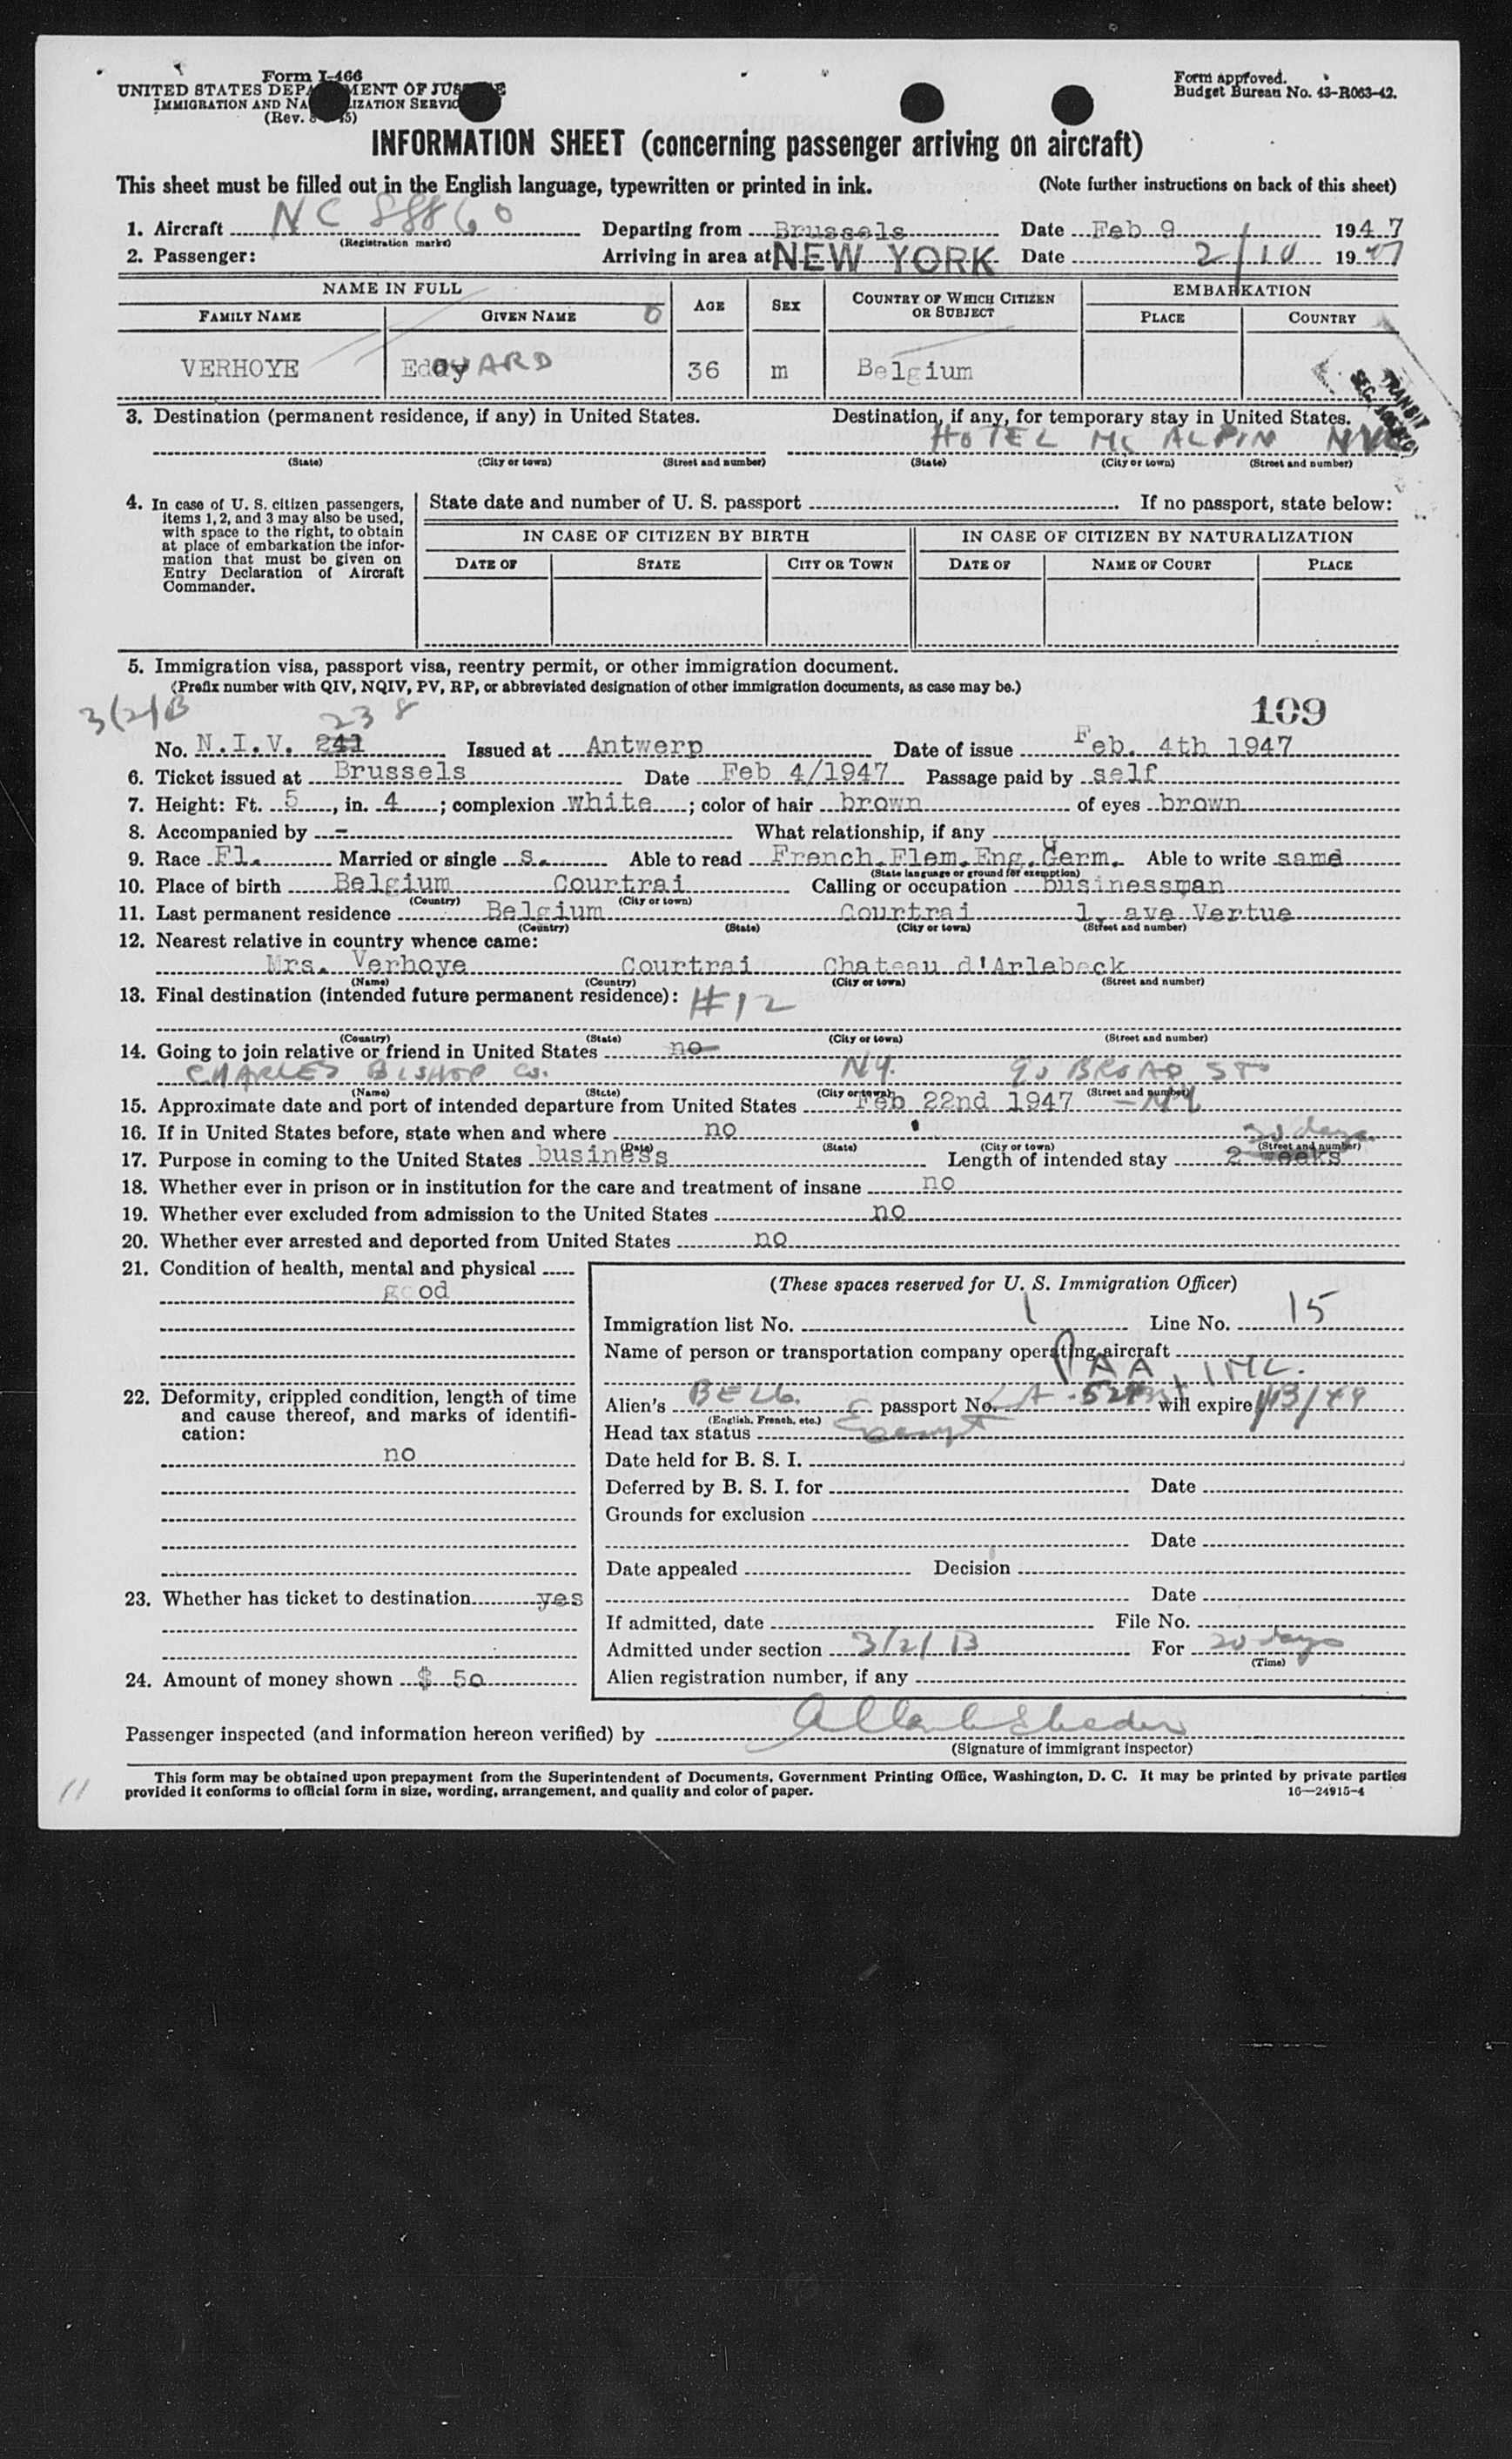 Form I-466
UNITED STATES DEPARTMENT OF JUSTICE
IMMIGRATION AND NATURALIZATION SERVICE
(Rev.
Form approved.
Budget Bureau No. 43-R063-42.
INFORMATION SHEET (concerning passenger arriving on aircraft)
This sheet must be filled out in the English language, typewritten or printed in ink. (Note further instructions on back of this sheet)
1. Aircraft NC 88860 Departing from Brussels Date Feb 9 1947
(Registration marks)
2. Passenger: Arriving in area at NEW YORK Date 2/10 1947
NAME IN FULL AGE SEX COUNTRY OF WHICH CITIZEN OR SUBJECT EMBARKATION
FAMILY NAME GIVEN NAME PLACE COUNTRY
VERHOYE EdouARD 36 m Belgium
TRANSIT
3. Destination (permanent residence, if any) in United States. Destination, if any, for temporary stay in United States.
HOTEL Mc ALPIN NYC
(State) (City or town) (Street and number) (State) (City or town) (Street and number)
4. In case of U. S. citizen passengers, items 1, 2, and 3 may also be used, with space to the right, to obtain at place of embarkation the information that must be given on Entry Declaration of Aircraft Commander.
State date and number of U. S. passport If no passport, state below:
IN CASE OF CITIZEN BY BIRTH IN CASE OF CITIZEN BY NATURALIZATION
DATE OF STATE CITY OR TOWN DATE OF NAME OF COURT PLACE
5. Immigration visa, passport visa, reentry permit, or other immigration document.
(Prefix number with QIV, NQIV, PV, RP, or abbreviated designation of other immigration documents, as case may be.)
3(2)B 238 109
No. N.I.V. 241 Issued at Antwerp Date of issue Feb. 4th 1947
6. Ticket issued at Brussels Date Feb 4/1947 Passage paid by self
7. Height: Ft. 5, in. 4; complexion white; color of hair brown of eyes brown
8. Accompanied by - What relationship, if any
9. Race Fl. Married or single s. Able to read French.Flem.Eng.Germ. Able to write same
(State language or ground for exemption)
10. Place of birth Belgium Courtrai Calling or occupation businessman
(Country) (City or town)
11. Last permanent residence Belgium Courtrai 1, ave Vertue
(Country) (State) (City or town) (Street and number)
12. Nearest relative in country whence came:
Mrs. Verhoye Courtrai Chateau d'Arlebeck
(Name) (Country) (City or town) (Street and number)
13. Final destination (intended future permanent residence): #12
(Country) (State) (City or town) (Street and number)
14. Going to join relative or friend in United States no
CHARLES BISHOP Co. NY. 90 BROAD ST
(Name) (State) (City or town) (Street and number)
15. Approximate date and port of intended departure from United States Feb 22nd 1947 - NY
16. If in United States before, state when and where no
(Date) (State) (City or town) (Street and number)
20 days
17. Purpose in coming to the United States business Length of intended stay 2 weeks
18. Whether ever in prison or in institution for the care and treatment of insane no
19. Whether ever excluded from admission to the United States no
20. Whether ever arrested and deported from United States no
21. Condition of health, mental and physical
good
22. Deformity, crippled condition, length of time and cause thereof, and marks of identification:
no
23. Whether has ticket to destination yes
24. Amount of money shown $ 50
(These spaces reserved for U. S. Immigration Officer)
Immigration list No. 1 Line No. 15
Name of person or transportation company operating aircraft
PAA, INC.
Alien's BELG. passport No. will expire
(English, French, etc.)
Head tax status Exempt
Date held for B. S. I.
Deferred by B. S. I. for Date
Grounds for exclusion
Date
Date appealed Decision
Date
If admitted, date File No.
Admitted under section 3/2/B For 20 days
(Time)
Alien registration number, if any
Passenger inspected (and information hereon verified) by
(Signature of immigrant inspector)
This form may be obtained upon prepayment from the Superintendent of Documents, Government Printing Office, Washington, D. C. It may be printed by private parties
provided it conforms to official form in size, wording, arrangement, and quality and color of paper. 16—24915-4
11